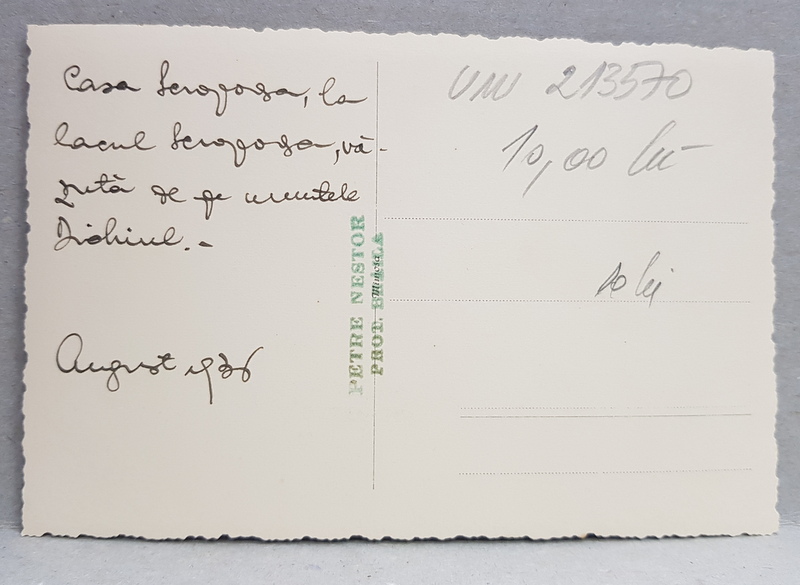 Casa Scropoasa, la
lacul Scropoasa, vă-
zută de pe muntele
Dichiul.-
August 1936
PETRE NESTOR
PROT. BRĂILA
Mimosa
213570
10,00 lei
10 lei